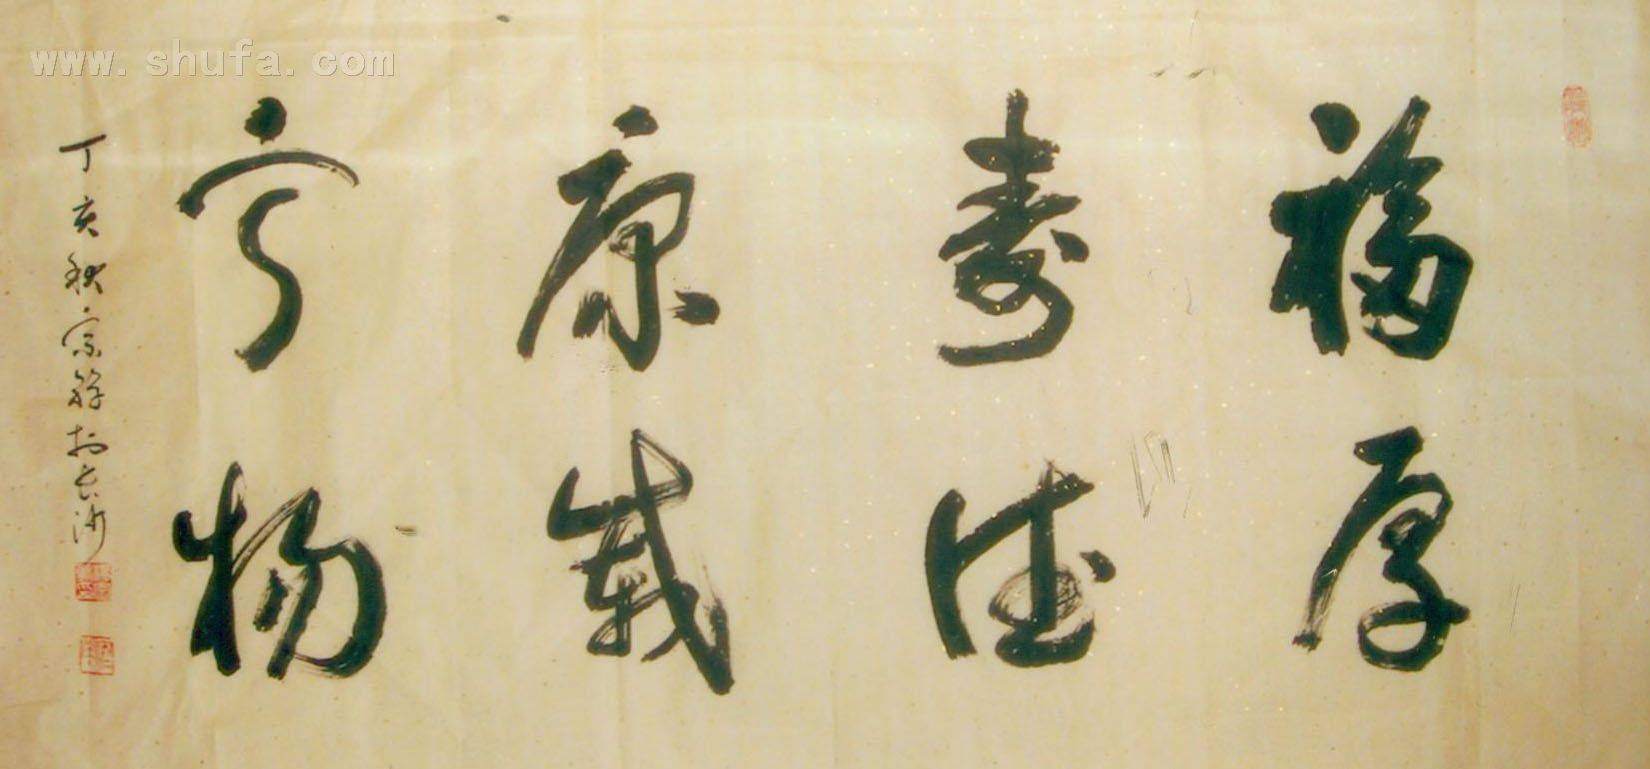 www.shufa.com
福寿康宁
厚德载物
丁亥秋宗於长沙